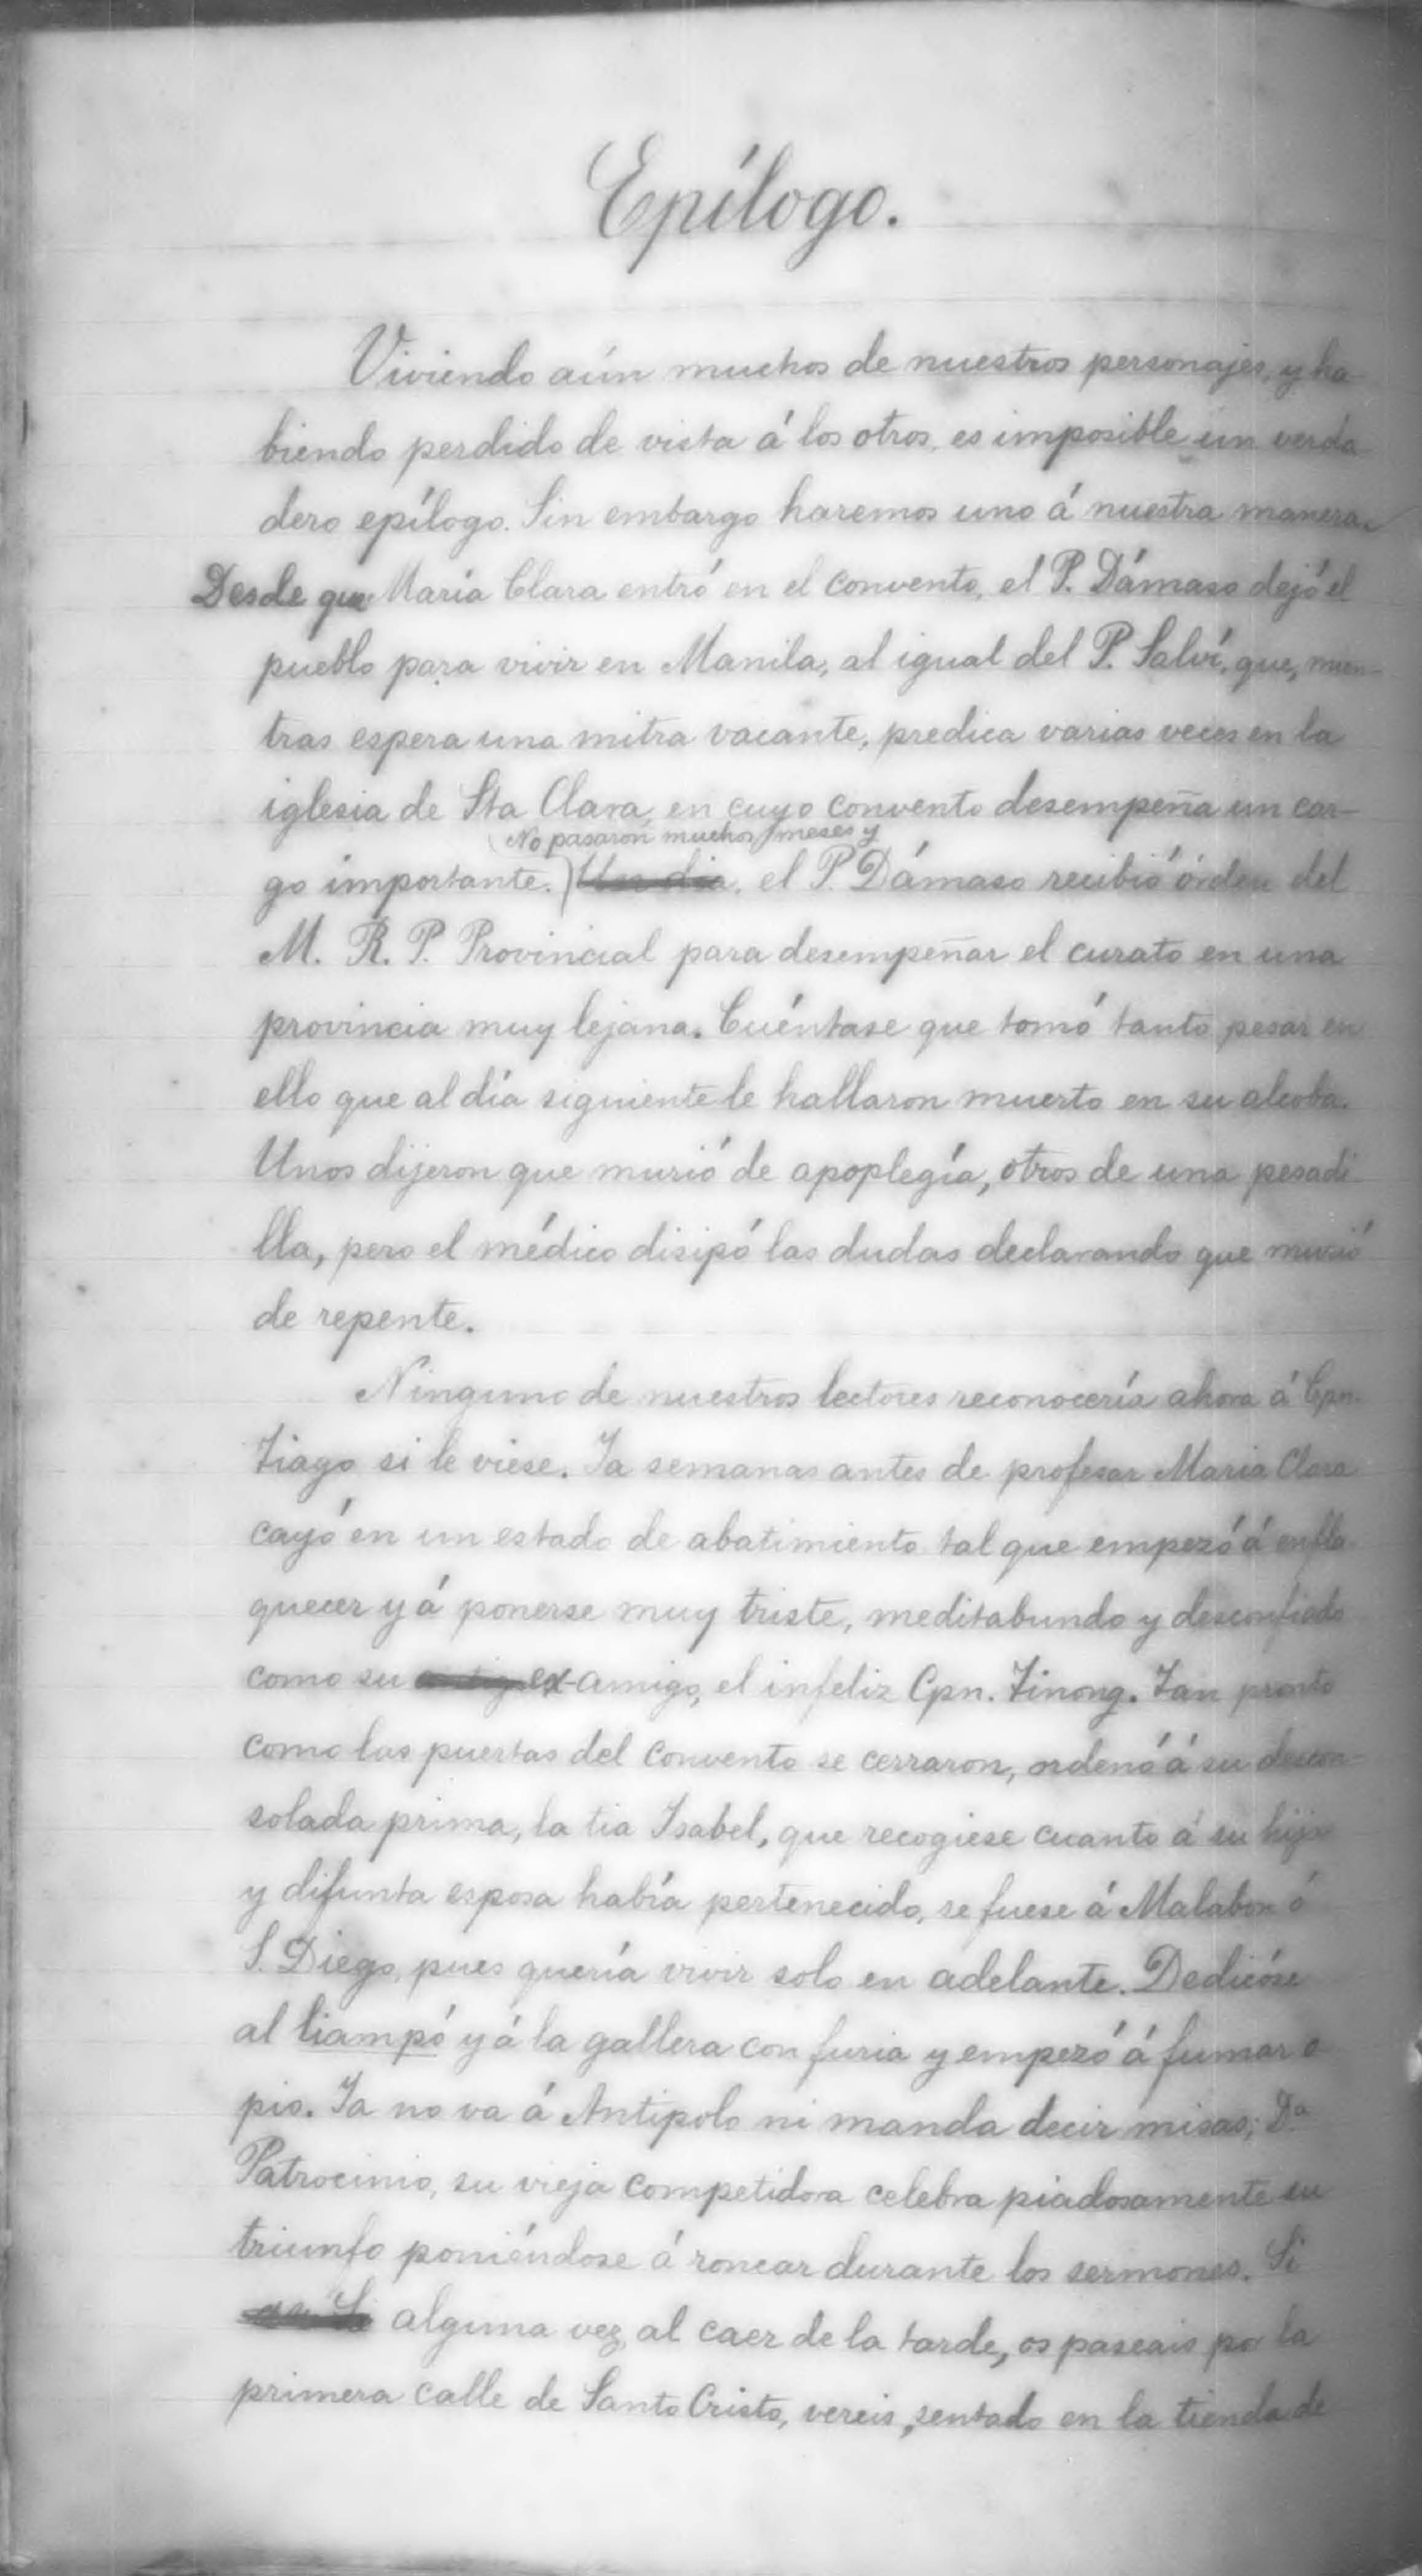 Epílogo.
Viviendo aún muchos de nuestros personajes, y ha
biendo perdido de vista á los otros, es imposible un verda
dero epílogo. Sin embargo haremos uno á nuestra manera.
Desde que María Clara entró en el convento, el P. Dámaso dejó el
pueblo para vivir en Manila, al igual del P. Salví, que, mien-
tras espera una mitra vacante, predica varias veces en la
iglesia de Sta Clara, en cuyo convento desempeña un car-
No pasaron muchos meses y
go importante. Un dia, el P. Dámaso recibió órden del
M. R. P. Provincial para desempeñar el curato en una
provincia muy lejana. Cuéntase que tomó tanto pesar en
ello que al día siguiente le hallaron muerto en su alcoba.
Unos dijeron que murió de apoplegía, otros de una pesadi
lla, pero el médico disipó las dudas declarando que murió
de repente.
Ninguno de nuestros lectores reconocería ahora á Cpn.
Tiago si le viese. Ya semanas antes de profesar Maria Clara
cayó en un estado de abatimiento tal que empezó á enfla
quecer y á ponerse muy triste, meditabundo y desconfiado
como su ex-amigo, el infeliz Cpn. Tinong. Tan pronto
como las puertas del convento se cerraron, ordenó á su descon-
solada prima, la tia Isabel, que recogiese cuanto á su hija
y difunta esposa había pertenecido, se fuese á Malabon ó
S. Diego, pues quería vivir solo en adelante. Dedicóse
al liampó y á la gallera con furia y empezó á fumar o
pio. Ya no va á Antipolo ni manda decir misas; Dª
Patrocinio, su vieja competidora celebra piadosamente su
triunfo poniéndose á roncar durante los sermones. Si
alguna vez, al caer de la tarde, os paseais por la
primera calle de Santo Cristo, vereis, sentado en la tienda de